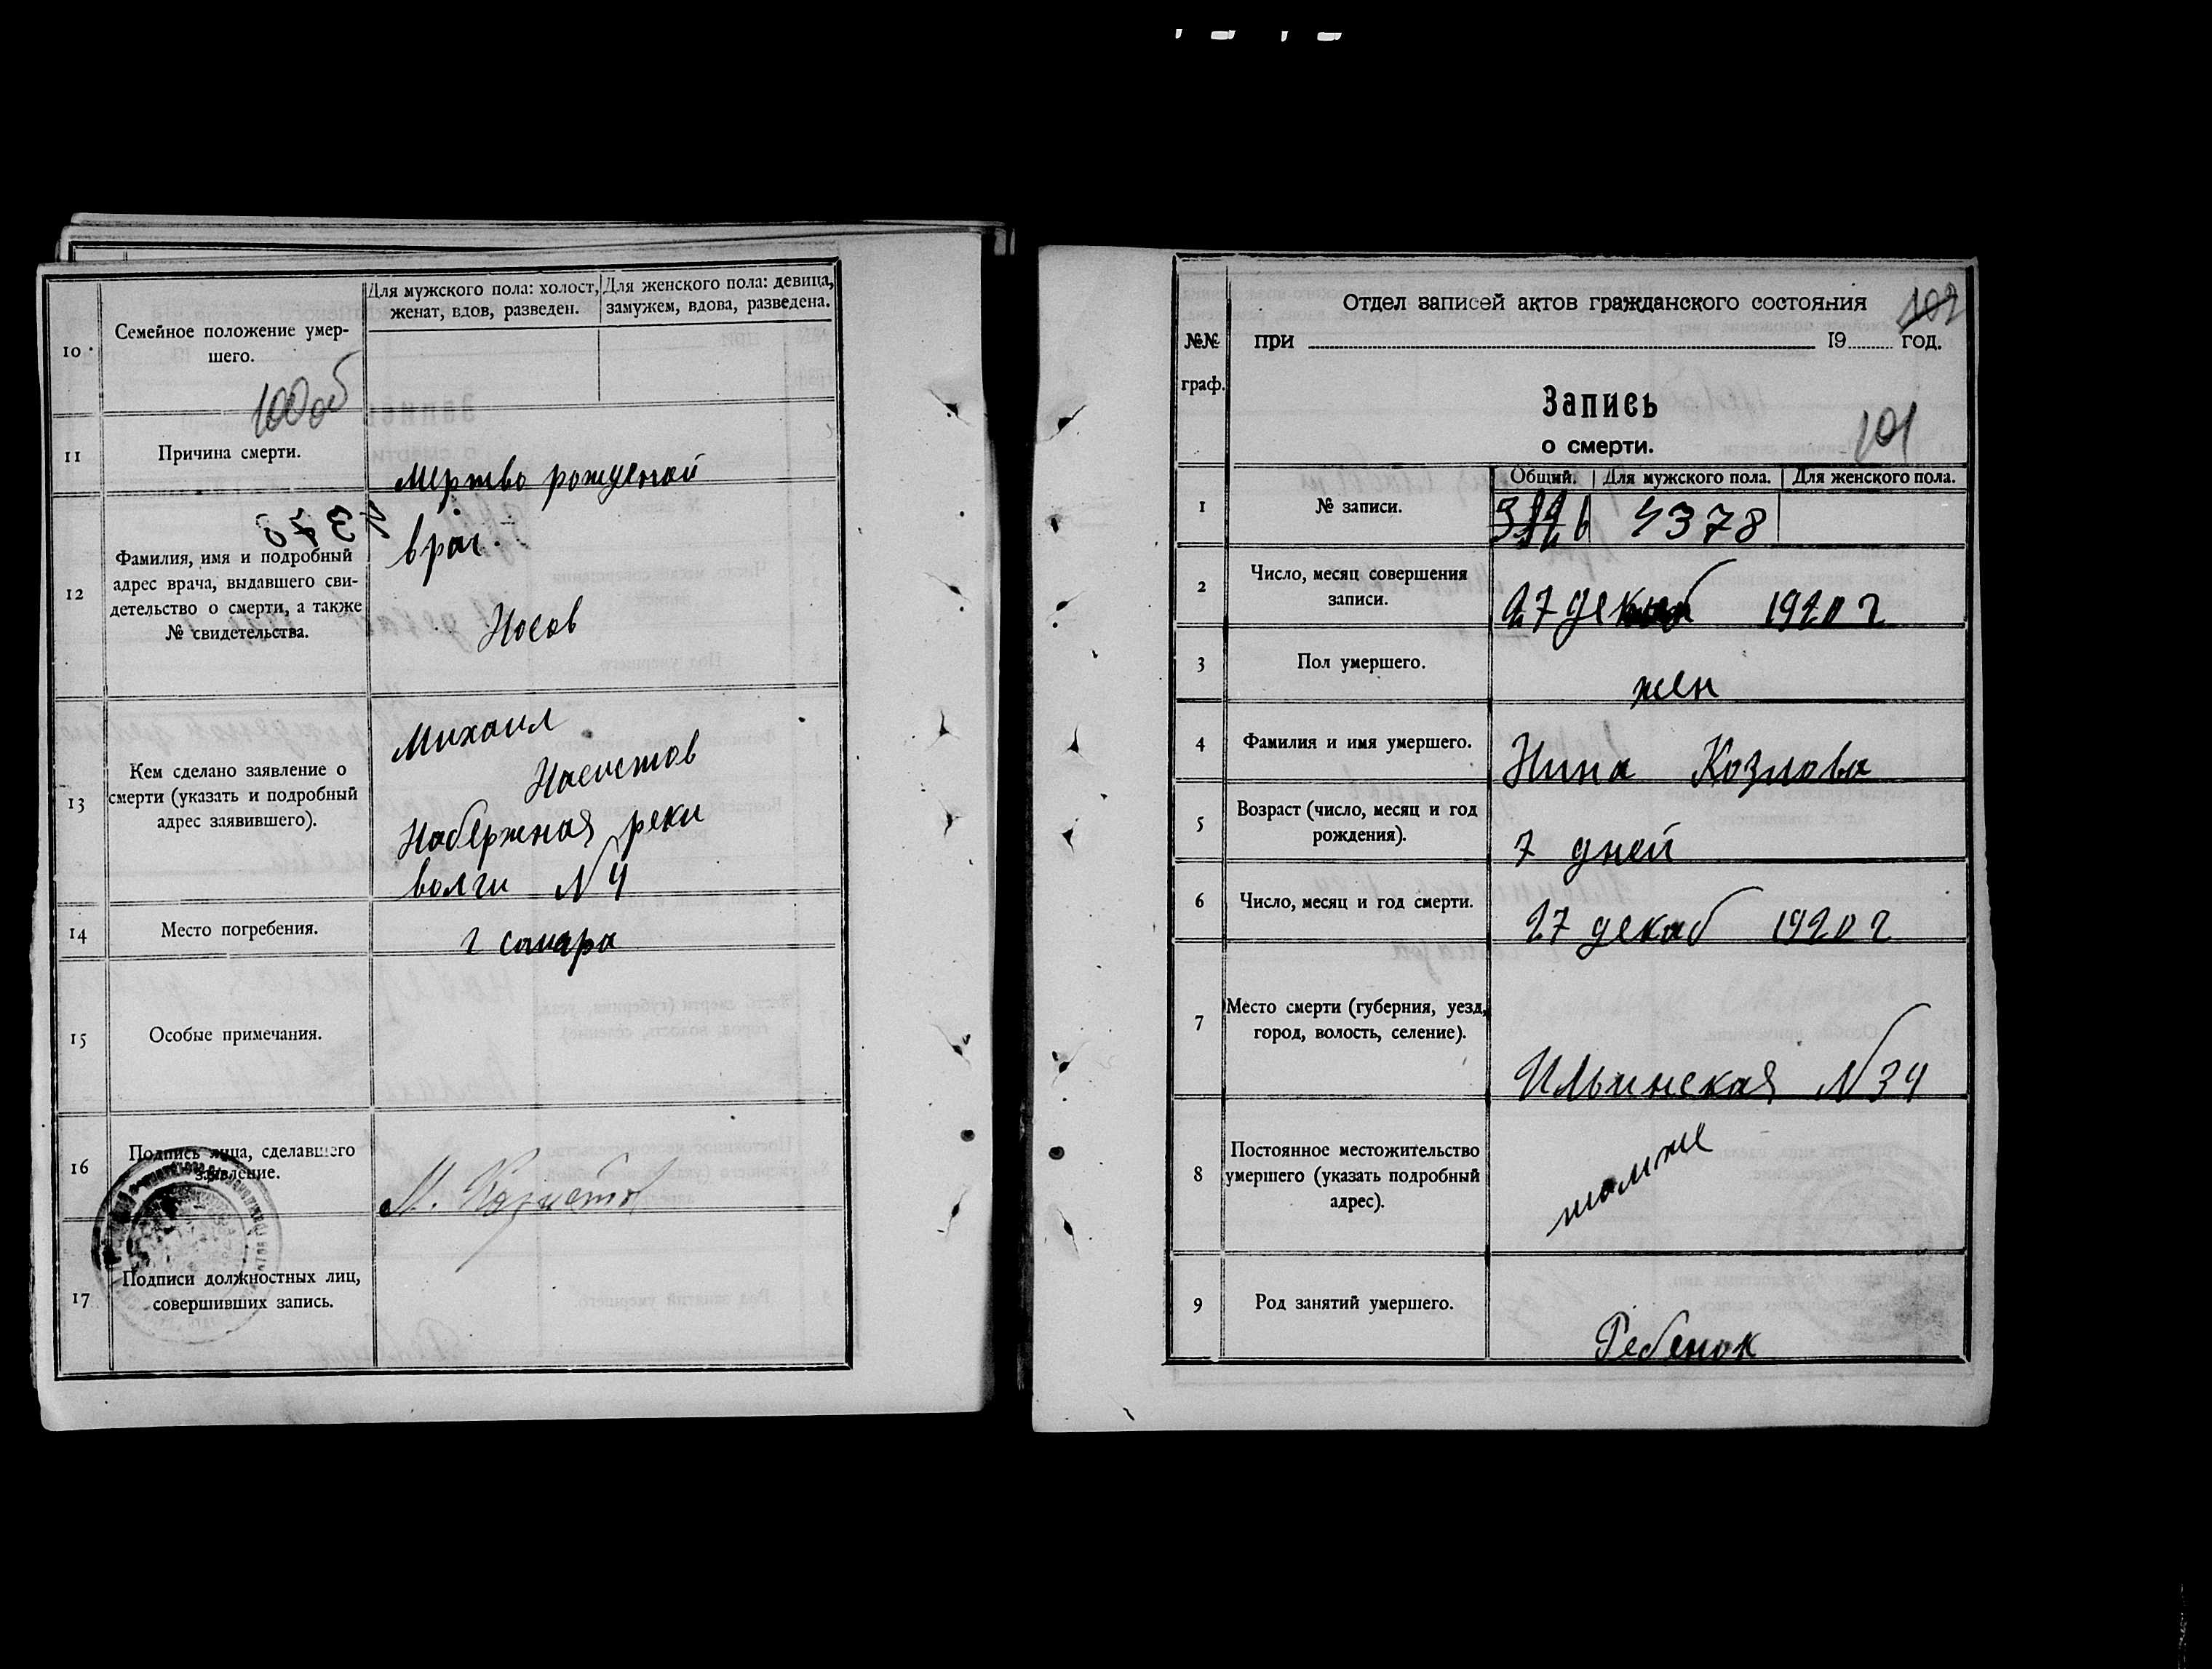 10
Семейное положение умер-
шего.
Для мужского пола: холост,
женат, вдов, разведен.
Для женского пола: девица,
замужем, вдова, разведена.
100об
11
Причина смерти.
мертво рожденой
12
Фамилия, имя и подробный
адрес врача, выдавшего сви-
детельство о смерти, а также
№ свидетельства.
врач.
Носов
13
Кем сделано заявление о
смерти (указать и подробный
адрес заявившего).
Михаил
Набержная реки
волги N 4
14
Место погребения.
г самара
15
Особые примечания.
16
Подпись лица, сделавшего
заявление.
М.
17
Подписи должностных лиц,
совершивших запись.
102
Отдел записей актов гражданского состояния
№№
граф.
при 19 год.
Запись
о смерти.
101
Общий. Для мужского пола. Для женского пола.
1
№ записи.
4378
2
Число, месяц совершения
записи.
27 декаб 1920 г
3
Пол умершего.
жен
4
Фамилия и имя умершего.
Нина Козлова
5
Возраст (число, месяц и год
рождения).
7 дней
6
Число, месяц и год смерти.
27 декаб 1920 г
7
Место смерти (губерния, уезд,
город, волость, селение).
Ильинская N 34
8
Постоянное местожительство
умершего (указать подробный
адрес).
томже
9
Род занятий умершего.
Ребенок